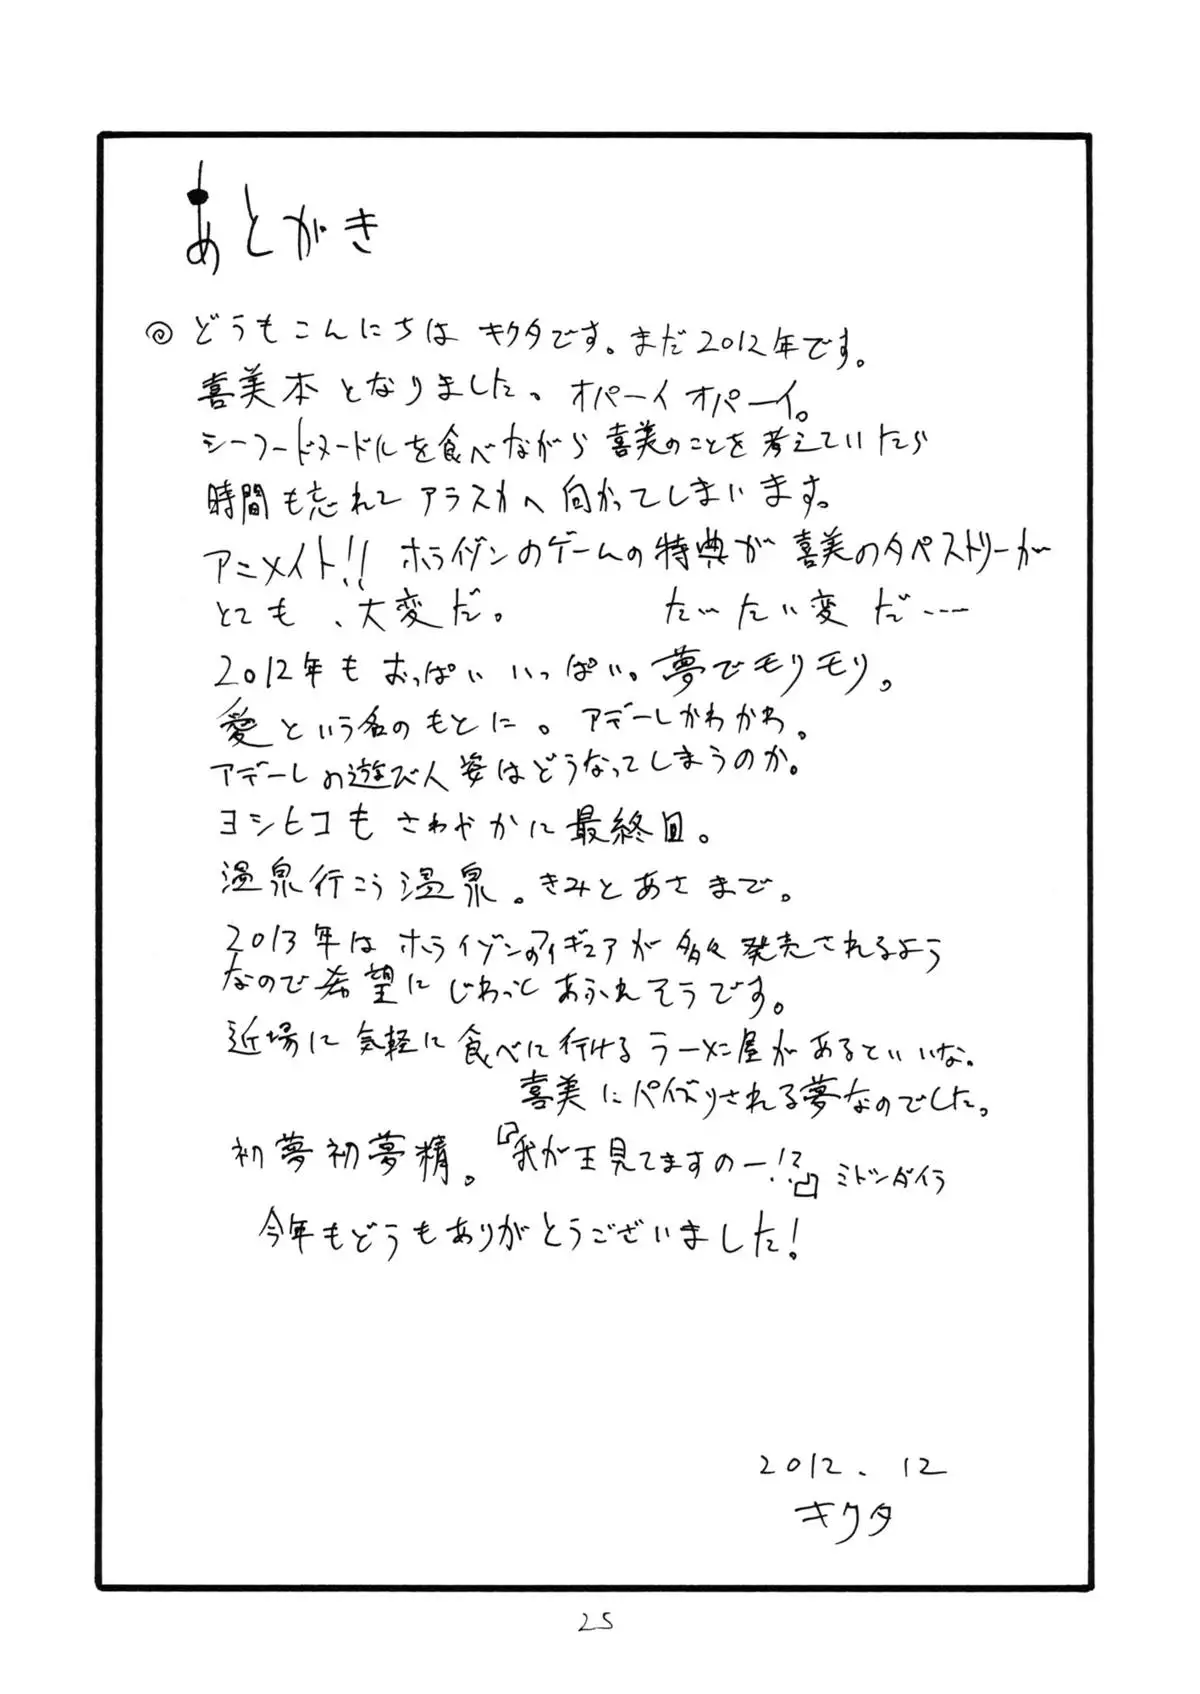 あとがき
◎どうもこんにちは キクタです。まだ2012年です。
喜美本となりました。オパーイオパーイ。
シーフードヌードルを食べながら喜美のことを考えていたら
時間も忘れてアラスカへ向かってしまいます。
アニメイト!! ホライゾンのゲームの特典が喜美のタペストリーが
とても、大変だ。 たいたい変だ----
2012年もおっぱいいっぱい。夢でモリモリ。
愛という名のもとに。アデーレかわかわ。
アデーレの遊び人姿はどうなってしまうのか。
ヨシヒコもさわやかに最終回。
温泉行こう温泉。きみとあさまで。
2013年はホライゾンのフィギュアが多々発売されるよう
なので希望にじわっとあふれそうです。
近場に気軽に食べに行けるラーメン屋があるといいな。
喜美にパイズリされる夢なのでした。
初夢初夢精。『我が王見てますのー!?』ミトツダイラ
今年もどうもありがとうございました!
2012.12
キクタ
25